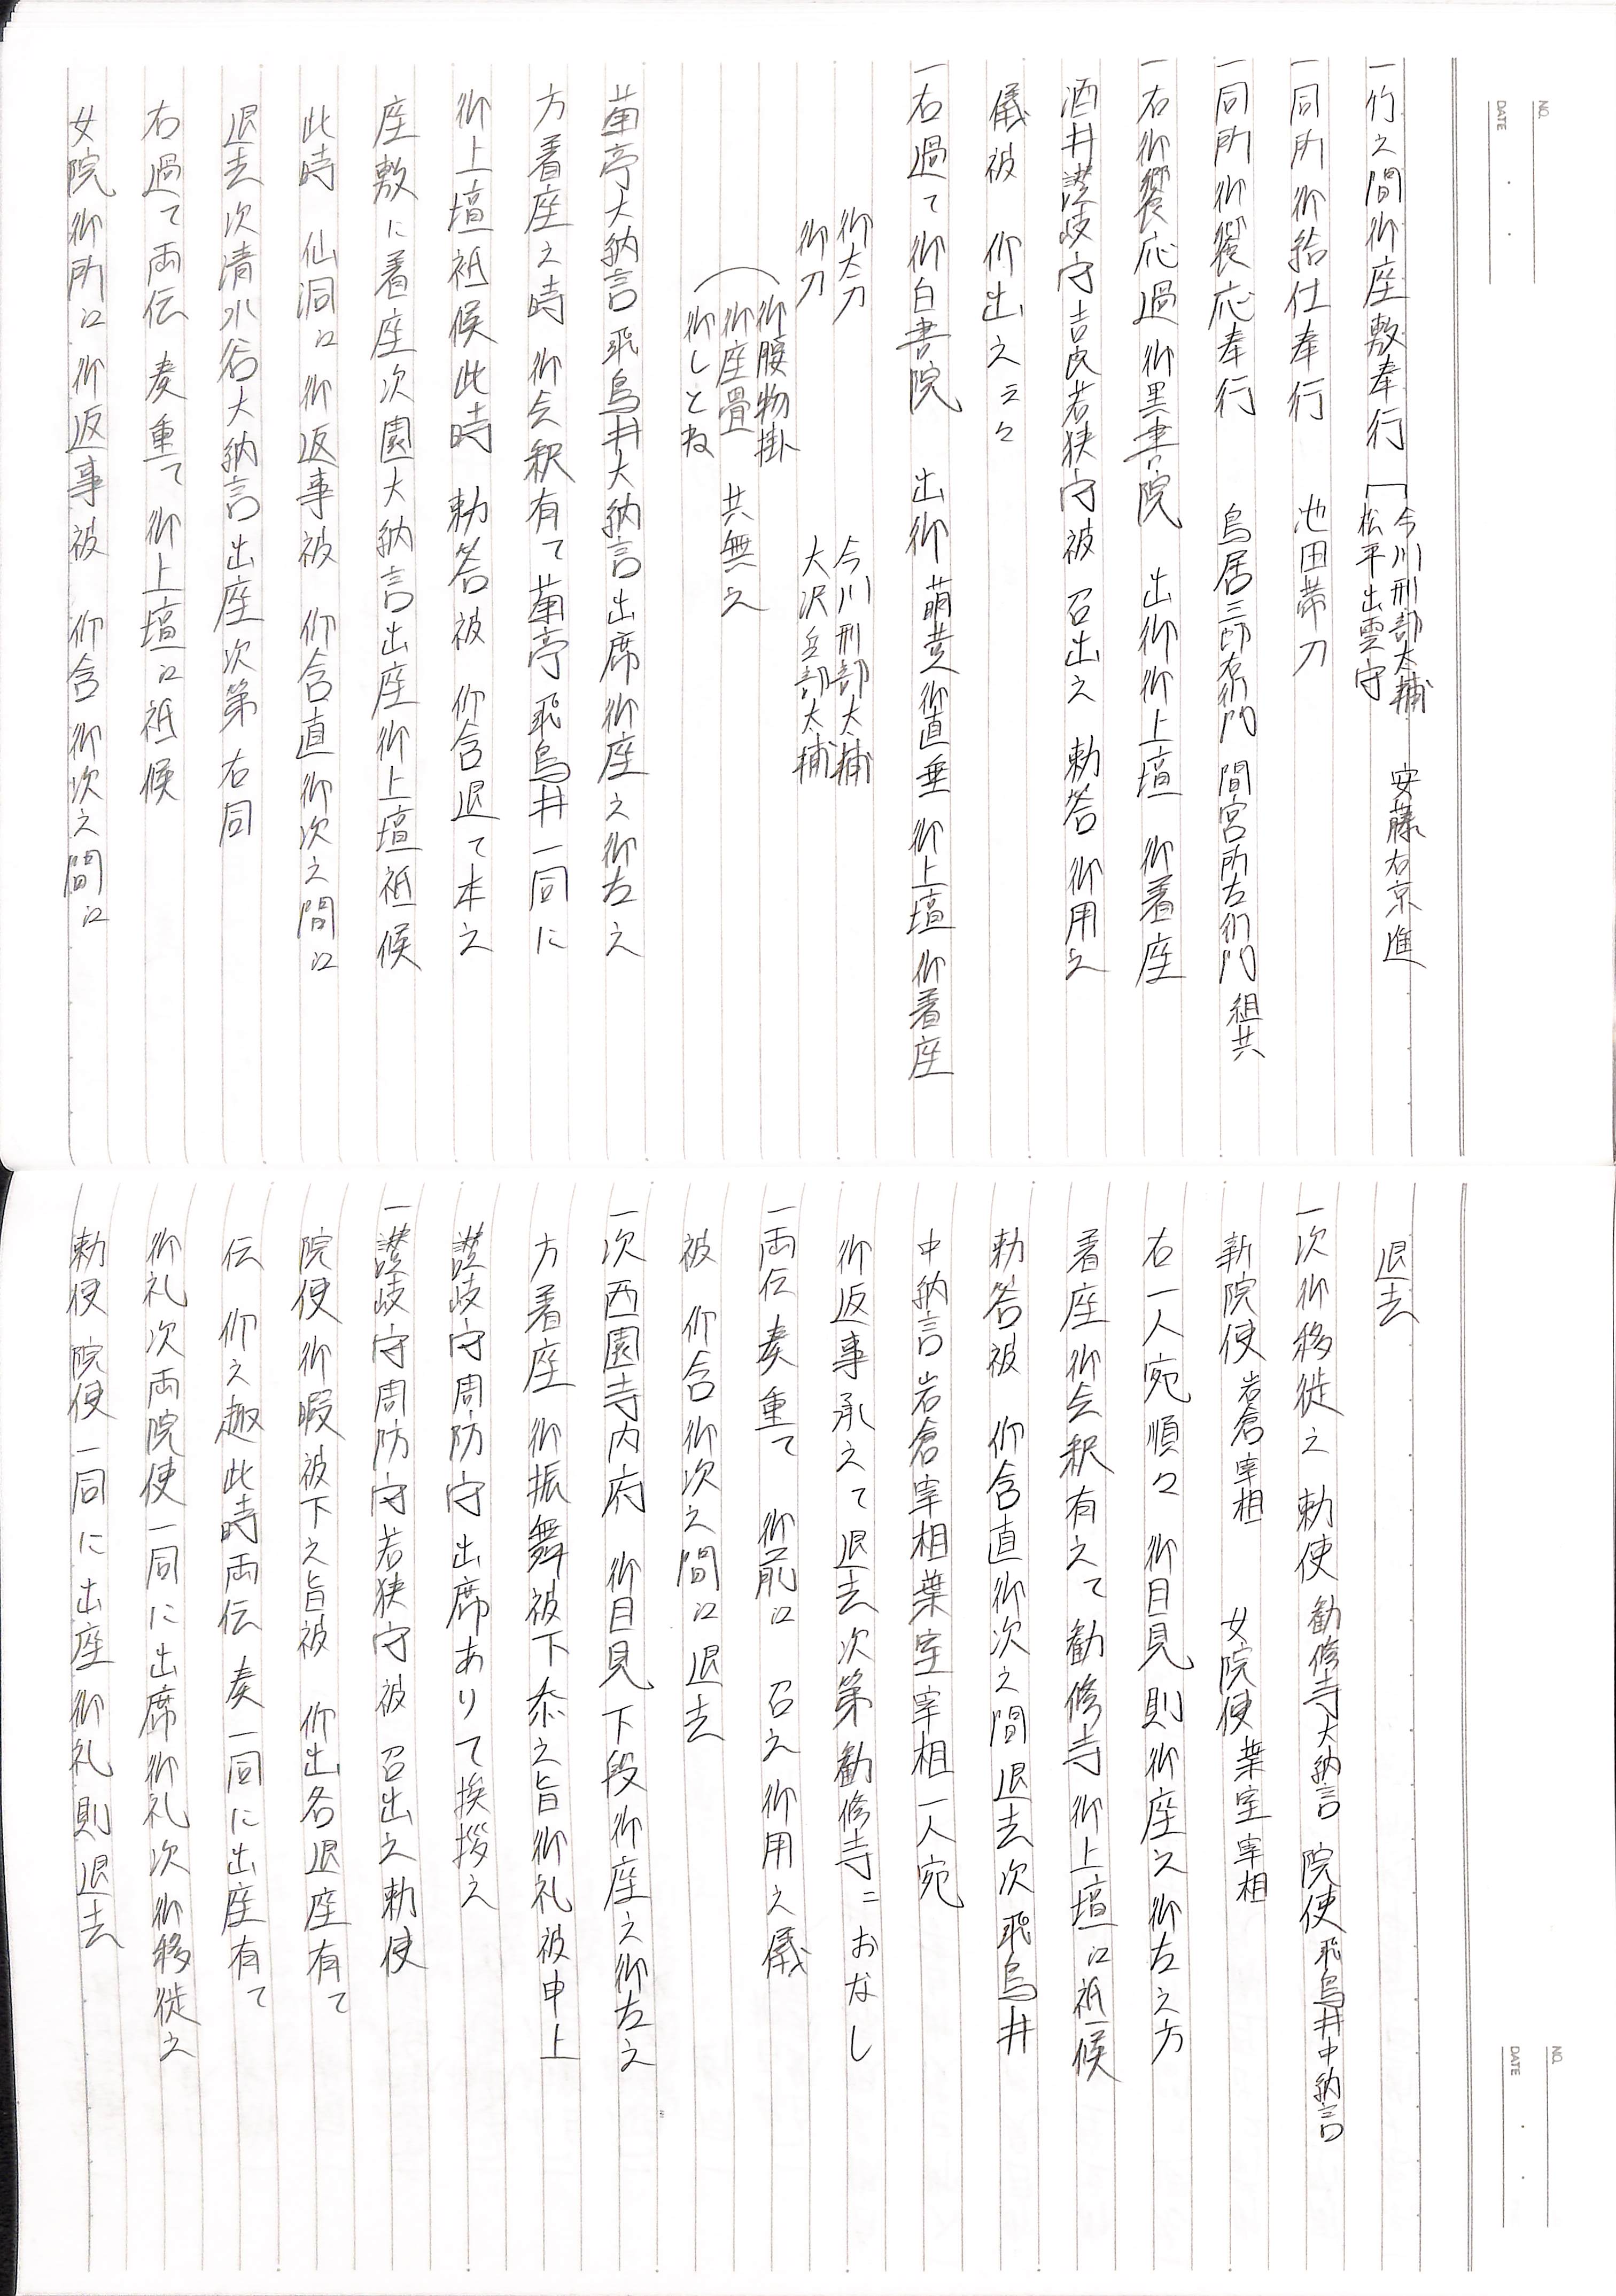 NO.
DATE
一竹之間御座敷奉行 今川刑部太輔 安藤右京進
松平出雲守
一同所御給仕奉行 池田帯刀
一同所御饗応奉行 鳥居三郎右衛門 間宮所左衛門 組共
一右御饗応過御黒書院 出御御上壇 御着座
酒井讃岐守吉良若狭守被 召出之 勅答 御用之
儀被 仰出之云々
一右過て御白書院 出御 萌黄御直垂 御上壇御着座
御太刀 今川刑部太輔
御刀 大沢兵部太輔
御腰物掛
御座畳 共無之
御しとね
菊亭大納言飛鳥井大納言出席御座之御右之
方着座之時 御会釈有て菊亭飛鳥井一同に
御上壇祗候此時 勅答被 仰含退て本之
座敷に着座次園大納言出座御上壇祗候
此時 仙洞江 御返事被 仰含直御次之間江
退去次清水谷大納言出座次第 右同
右過て両伝 奏重て 御上壇江祗候
女院御所江御返事被 仰含御次之間江
NO.
DATE
退去
一次御移徙之 勅使 勧修寺大納言 院使 飛鳥井中納言
新院使 岩倉宰相 女院使 葉室宰相
右一人宛順々 御目見則御座之御右之方
着座御会釈有之て勧修寺 御上壇江祗候
勅答被 仰含直御次之間退去次飛鳥井
中納言岩倉宰相葉室宰相一人宛
御返事承之て退去次第勧修寺ニおなし
一両伝 奏重て 御前江 召之御用之儀
被 仰含御次之間江退去
一次西園寺内府 御目見下段御座之御右之
方着座御振舞被下忝之旨御礼被申上
讃岐守周防守出席ありて挨拶之
一讃岐守周防守若狭守被 召出之勅使
院使御暇被下之旨被 仰出各退座有て
伝 仰之趣此時両伝 奏一同に出座有て
御礼次両院使一同に出席御礼次御移徙之
勅使院使一同に出座御礼則退去